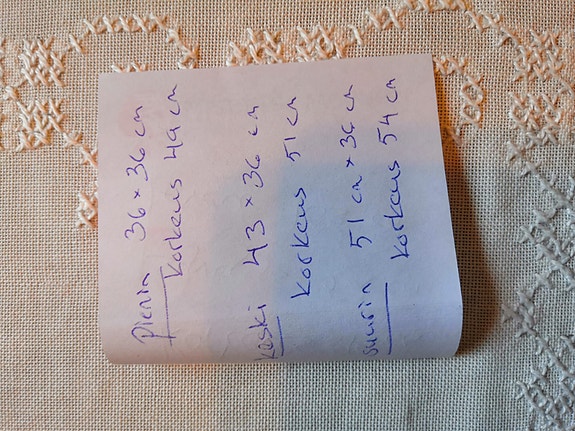 pienin 36 x 36 cm
korkeus 49 cm
keski 43 x 36 cm
korkeus 51 cm
suurin 51 cm x 36 cm
korkeus 54 cm